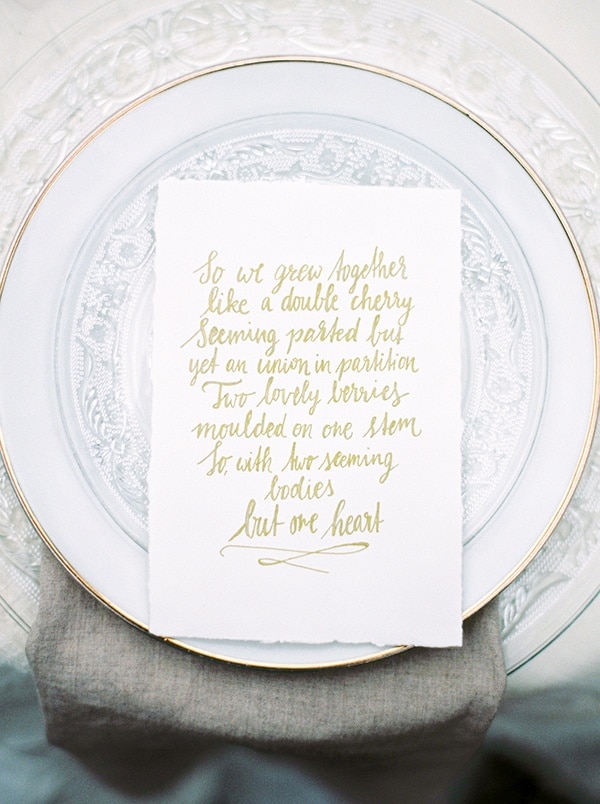 So we grew together
like a double cherry
Seeming parted but
yet an union in partition
Two lovely berries
moulded on one stem
So, with two seeming
bodies
but one heart